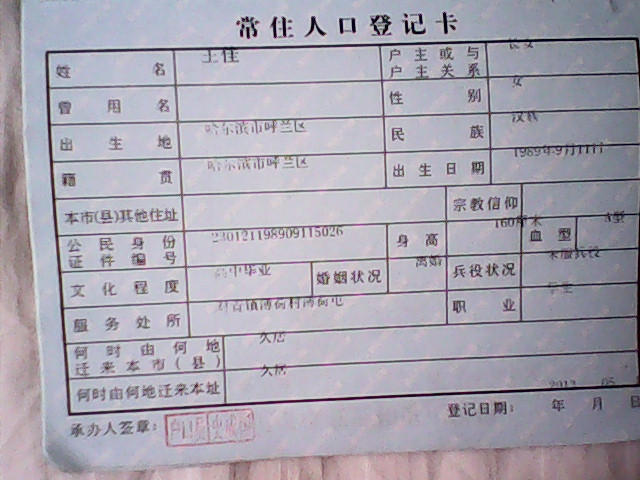 常住人口登记卡
姓名 王佳 户主或与户主关系 长女
曾用名 性别 女
出生地 哈尔滨市呼兰区 民族 汉族
籍贯 哈尔滨市呼兰区 出生日期 1989年9月11日
本市(县)其他住址 宗教信仰
公民身份证件编号 230121198909115026 身高 160厘米 血型 A型
文化程度 高中毕业 婚姻状况 离婚 兵役状况 未服兵役
服务处所 职业 学生
何时由何地迁来本市(县) 久居
何时由何地迁来本址 久居
承办人签章: 登记日期: 年 月 日